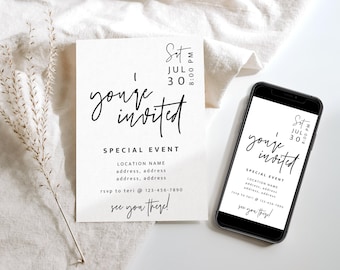 Sat
JUL
30
8:00 PM
you're
invited
SPECIAL EVENT
LOCATION NAME
address, address
address, address
rsvp to teri @ 123-456-7890
see you there!
Sat
JUL
30
8:00 PM
you're
invited
SPECIAL EVENT
LOCATION NAME
address, address
address, address
rsvp to teri @ 123-456-7890
see you there!